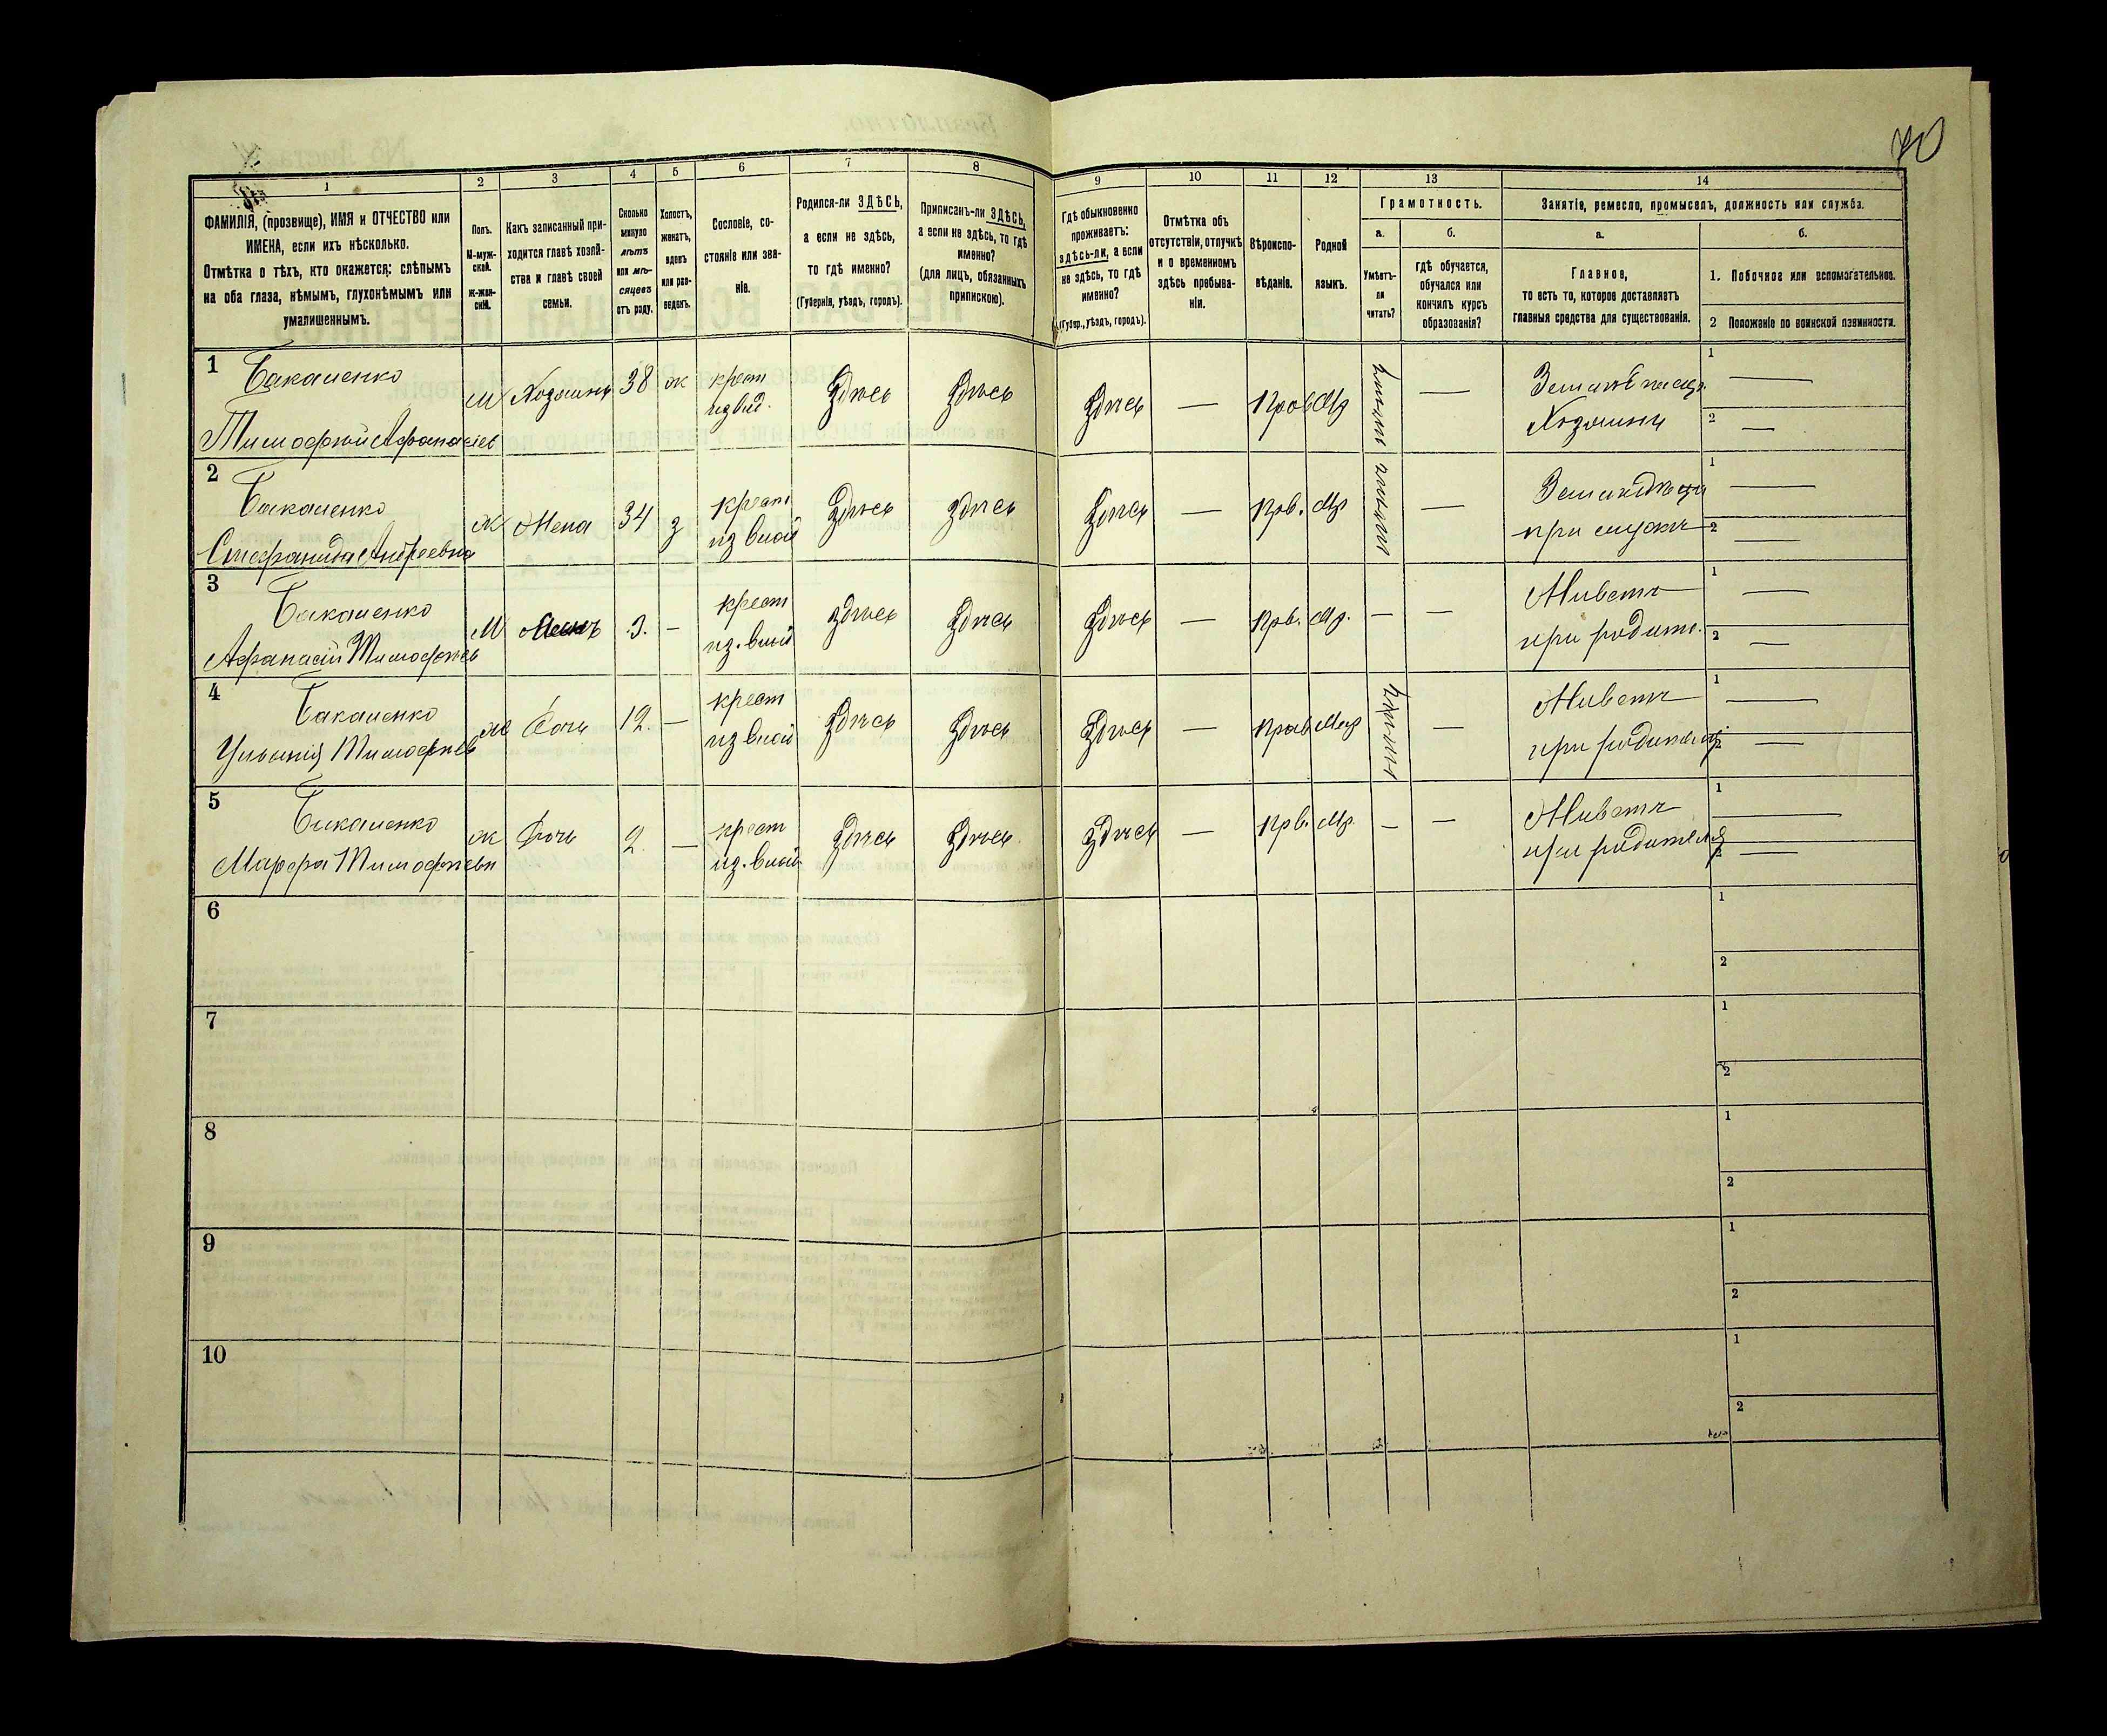 70
1 2 3 4 5 6 7 8 9 10 11 12 13 14
ФАМИЛІЯ, (прозвище), ИМЯ и ОТЧЕСТВО или
ИМЕНА, если ихъ нѣсколько.
Отмѣтка о тѣхъ, кто окажется: слѣпымъ
на оба глаза, нѣмымъ, глухонѣмымъ или
умалишеннымъ.
Полъ.
М-муж-
ской.
Ж-жен-
скій.
Какъ записанный при-
ходится главѣ хозяй-
ства и главѣ своей
семьи.
Сколько
минуло
лѣтъ
или мѣ-
сяцевъ
отъ роду.
Холостъ,
женатъ,
вдовъ
или раз-
веденъ.
Сословіе, со-
стояніе или зва-
ніе.
Родился-ли ЗДѢСЬ,
а если не здѣсь,
то гдѣ именно?
(Губернія, уѣздъ, городъ).
Приписанъ-ли ЗДѢСЬ,
а если не здѣсь, то гдѣ
именно?
(для лицъ, обязанныхъ
припискою).
Гдѣ обыкновенно
проживаетъ:
здѣсь-ли, а если
не здѣсь, то гдѣ
именно?
(Губер., уѣздъ, городъ).
Отмѣтка объ
отсутствіи, отлучкѣ
и о временномъ
здѣсь пребыва-
ніи.
Вѣроиспо-
вѣданіе.
Родной
языкъ.
Грамотность.
а.
Умѣетъ-
ли
читать?
б.
гдѣ обучается,
обучался или
кончилъ курсъ
образованія?
Занятіе, ремесло, промыселъ, должность или служба.
а.
Главное,
то есть то, которое доставляетъ
главныя средства для существованія.
б.
1. Побочное или вспомогательное.
2 Положеніе по воинской повинности.
1 Бакаленко
Тимофей Афанасіев
М Хозяинъ 38 ж крест
Здѣсь Здѣсь Здѣсь — Прав —
Хозяинъ
1 —
2 —
2 Бакаленко
Стефанида Андреевна
ж Жена 34 з крест
Здѣсь Здѣсь Здѣсь — Прв. —
1 —
2 —
3 Бакаленко
Афанасій Тимофѣев
М 3. — крест
Здѣсь Здѣсь Здѣсь — Прв. — —
Живетъ
при родите.
1 —
2 —
4 Бакаленко
Ульянія Тимофѣев
ж Дочь 12. — крест
Здѣсь Здѣсь Здѣсь — Прав —
Живетъ
при родителяхъ
1 —
2 —
5 Бакаленко
Марфа Тимофѣевн
ж Дочь 2 — крест
Здѣсь Здѣсь Здѣсь — Прв. — —
Живетъ
при родителях
1 —
2 —
6
1
2
7
1
2
8
1
2
9
1
2
10
1
2